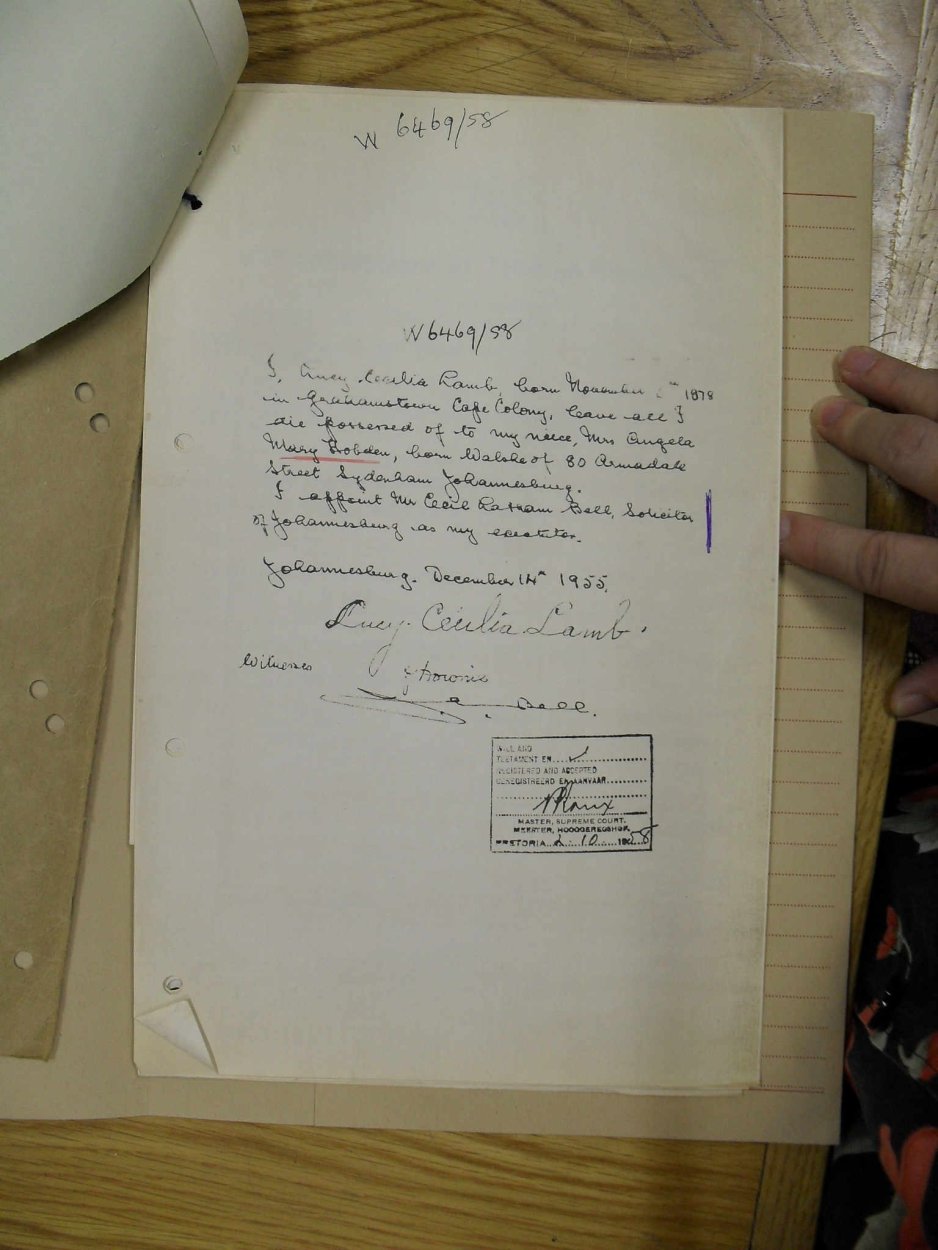 W 6469/58
W6469/58
I, Lucy Cecilia Lamb, born November 1878
in Grahamstown Cape Colony, leave all I
die possessed of to my niece, Mrs Angela
Mary Hobden, born Walshe of 80 Armadale
Street Sydenham Johannesburg.
I appoint Mr Cecil Bell, Solicitor
of Johannesburg as my executor.
Johannesburg. December 14th 1955.
Lucy Cecilia Lamb.
Witnesses
Bell.
WILL AND
TESTAMENT EN
REGISTERED AND ACCEPTED
GEREGISTREERD EN AANVAAR
MASTER, SUPREME COURT.
MEESTER, HOOGGEREGSHOF.
PRETORIA 2.10.1958